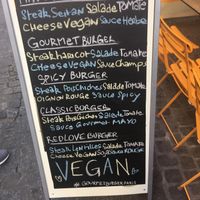 Steak Seitan Salade Tomate
Cheese Vegan Sauce Herbes
Gourmet Burger
Steak haricot Salade Tomate
Cheese Vegan Sauce Champs
Spicy Burger
Steak Pois Chiches Salade Tomate
Oignon Rouge Sauce Spicy
Classic Burger
Steak Pois Chiches Salade Tomate
Sauce Gourmet Mayo
Redlove Burger
Steak Lentilles Salade Tomate
Cheese Vegan
VEGAN